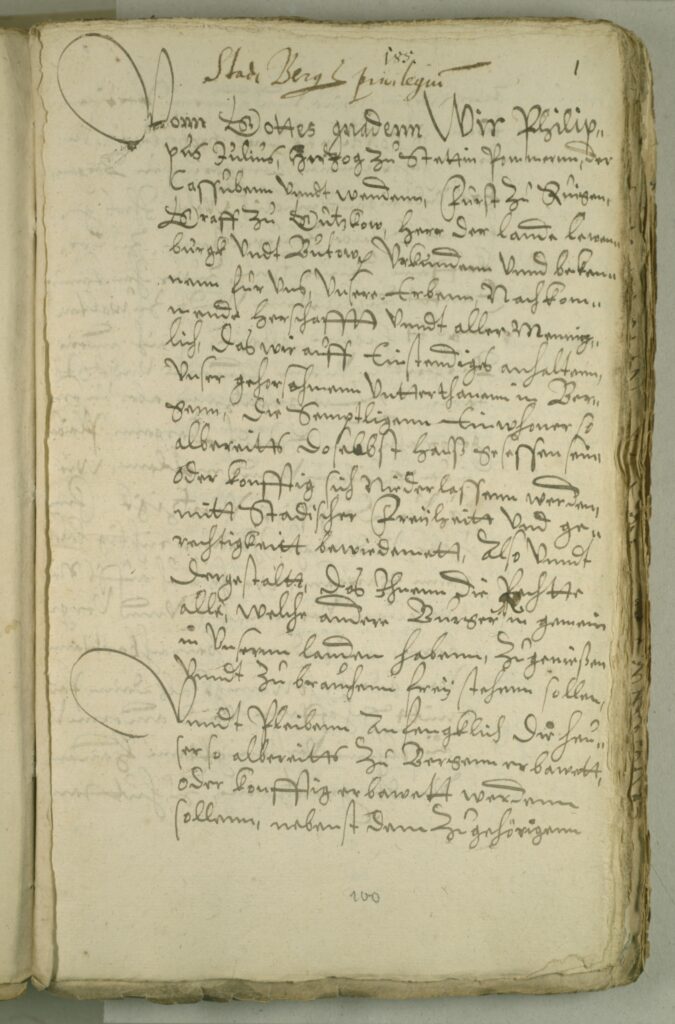 185
Stadt Bergk privilegiū
1
Vonn Gottes gnadenn Wir Philip-
pus Julius, Hertzog zu Stettin Pommernn, der
Cassubenn vnndt wendenn, Fürst zu Rügen,
Graff zu Gützkow, Herr der lande lewen-
burgk vndt Butow, Vrkunden vnnd beken-
nenn für vns, vnsere Erbenn, Nachkom-
mende herschafftt vnndt aller Mennig-
lich, das wir auff Einstendiges anhaltenn,
vnser gehorsahmenn vntterthanenn in Ber-
genn, die semptligenn Einwohner so
albereitts doselbst hauß gesessen sein
oder konfftig sich niederlassenn werden,
mitt Stadischer freyheitt vnd ge-
rechtigkeitt bewiedemett, also vnndt
dergestaltt, das Ihnenn die Rechtte
alle, welche andere Burger in gemein
in vnserm landen habenn, zugenießen
vnndt zu brauchenn frey stehenn sollen,
vnndt Pleibenn anfengklich die heu-
ser so albereitts zu Bergenn erbawett,
oder konfftig erbawett werdenn
sollenn, nebenst dem zugehörigenn
100